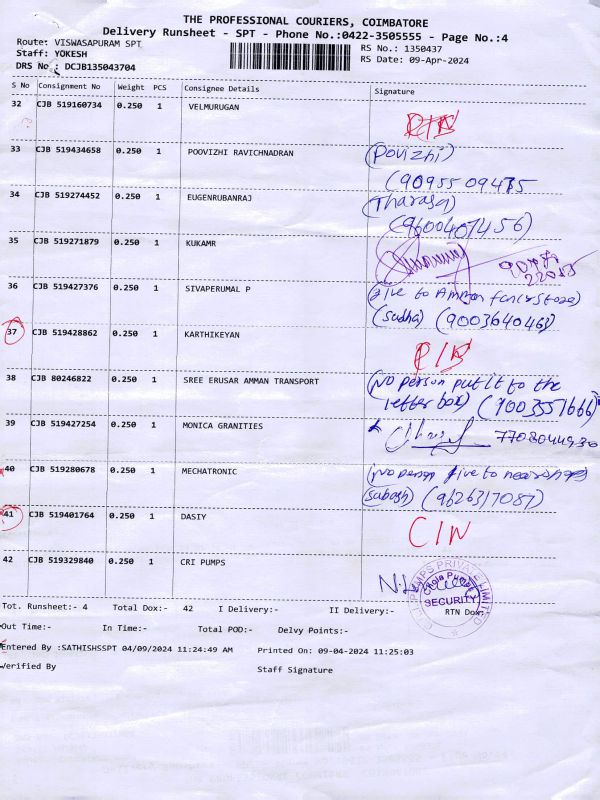 THE PROFESSIONAL COURIERS, COIMBATORE
Delivery Runsheet - SPT - Phone No.:0422-3505555 - Page No.:4
Route: VISWASAPURAM SPT
RS No.: 1350437
Staff: YOKESH
RS Date: 09-Apr-2024
DRS No : DCJB135043704
S No Consignment No Weight PCS Consignee Details Signature
32 CJB 519160734 0.250 1 VELMURUGAN
33 CJB 519434658 0.250 1 POOVIZHI RAVICHNADRAN (Povizhi)
(9095509475
34 CJB 519274452 0.250 1 EUGENRUBANRAJ (Tharasa)
(9600407456)
35 CJB 519271879 0.250 1 KUKAMR
36 CJB 519427376 0.250 1 SIVAPERUMAL P (Give to Amman store)
(Sudha) (9003640468)
37 CJB 519428862 0.250 1 KARTHIKEYAN
38 CJB 80246822 0.250 1 SREE ERUSAR AMMAN TRANSPORT (No person put it to the
letter box) (9003557666)
39 CJB 519427254 0.250 1 MONICA GRANITIES 7708044930
40 CJB 519280678 0.250 1 MECHATRONIC (No person give to
(Subash) (9626317087)
41 CJB 519401764 0.250 1 DASIY C/N
42 CJB 519329840 0.250 1 CRI PUMPS
PUMPS PRIVATE LIMITED
Chola Pump
SECURITY
Tot. Runsheet:- 4 Total Dox:- 42 I Delivery:- II Delivery:- RTN Dox
Out Time:- In Time:- Total POD:- Delvy Points:-
Entered By :SATHISHSSPT 04/09/2024 11:24:49 AM Printed On: 09-04-2024 11:25:03
Verified By Staff Signature